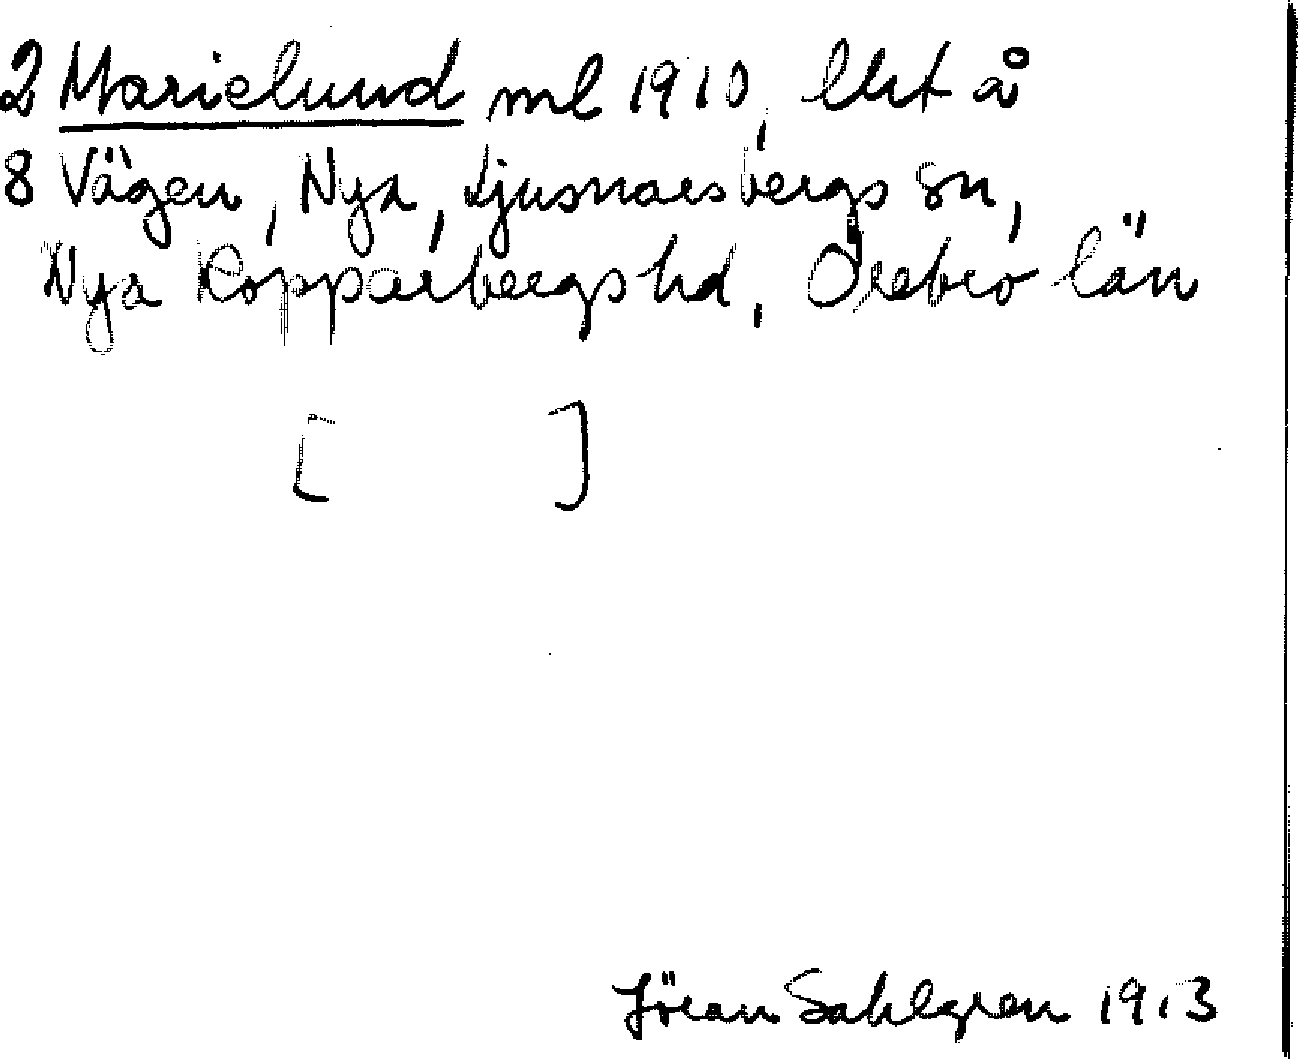 2 Marielund ml 1910, lht å
8 Vägen, Nya, Ljusnarsbergs sn,
Nya Kopparbergs hd, Örebro län
[ ]
Jöran Sahlgren 1913